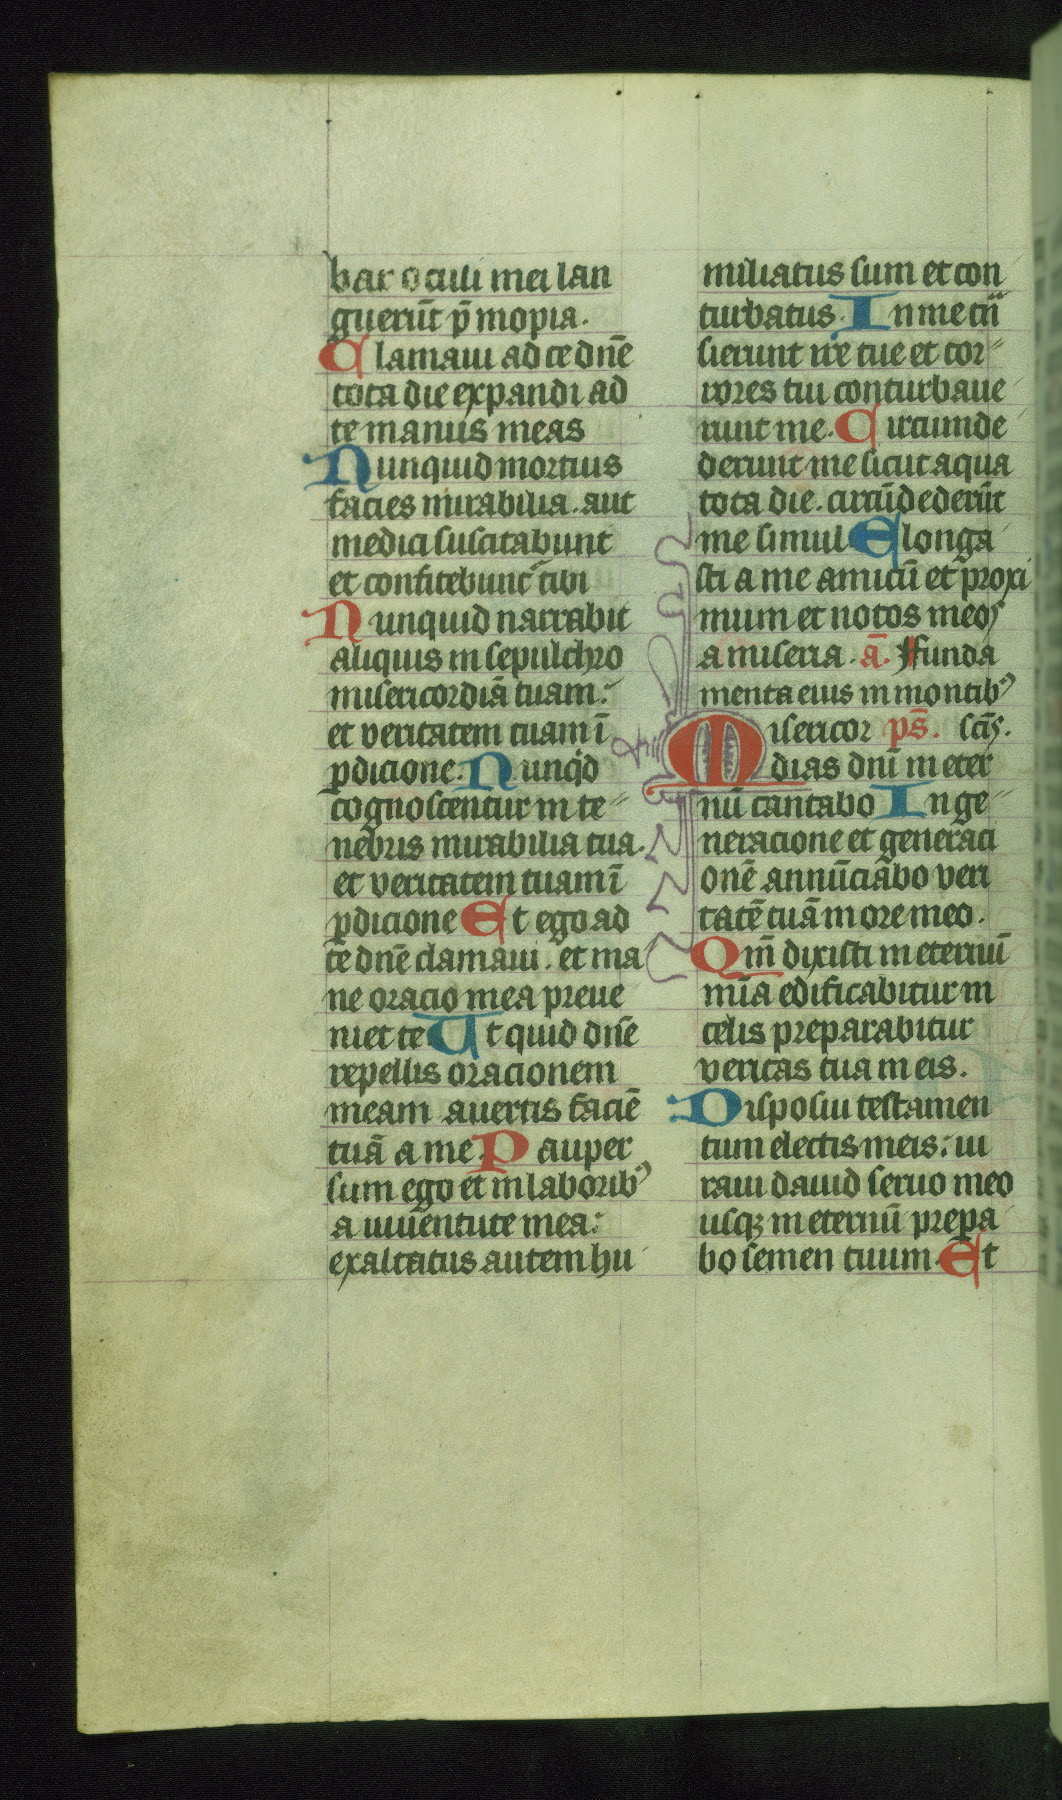 bar oculi mei lan
guerūt p̄ inopia.
Clamaui ad te dn̄e
tota die expandi ad
te manus meas
Nunquid mortuis
facies mirabilia. aut
medici suscitabunt
et confitebunt tibi
Nunquid narrabit
aliquis in sepulchro
misericordiā tuam:
et veritatem tuam ī
ꝑdicione. Nunqͥd
cognoscentur in te
nebris mirabilia tua.
et veritatem tuam ī
ꝑdicione Et ego ad
te dn̄e clamaui. et ma
ne oracio mea preue
niet te Ut quid dn̄e
repellis oracionem
meam auertis faciē
tuā a me. Pauper
sum ego et in laboribꝰ
a iuuentute mea:
exaltatus autem hu
miliatus sum et con
turbatus. In me tn̄
sierunt ire tue et ter
rores tui conturbaue
runt me. Circumde
derunt me sicut aqua
tota die. circūdederūt
me simul Elonga
sti a me amicū et proxi
mum et notos meos
a miseria. a͞. Funda
menta eius in montibꝰ
Misericor ps̄. sc̄is.
dias dn̄i in eter
nū cantabo In ge
neracione et generaci
onē annūciabo veri
tatē tuā in ore meo.
Qm̄ dixisti in eternū
mīa edificabitur in
celis preparabitur
veritas tua in eis.
Disposui testamen
tum electis meis: iu
raui dauid seruo meo
usqꝫ in eternū prepa
bo semen tuum. Et